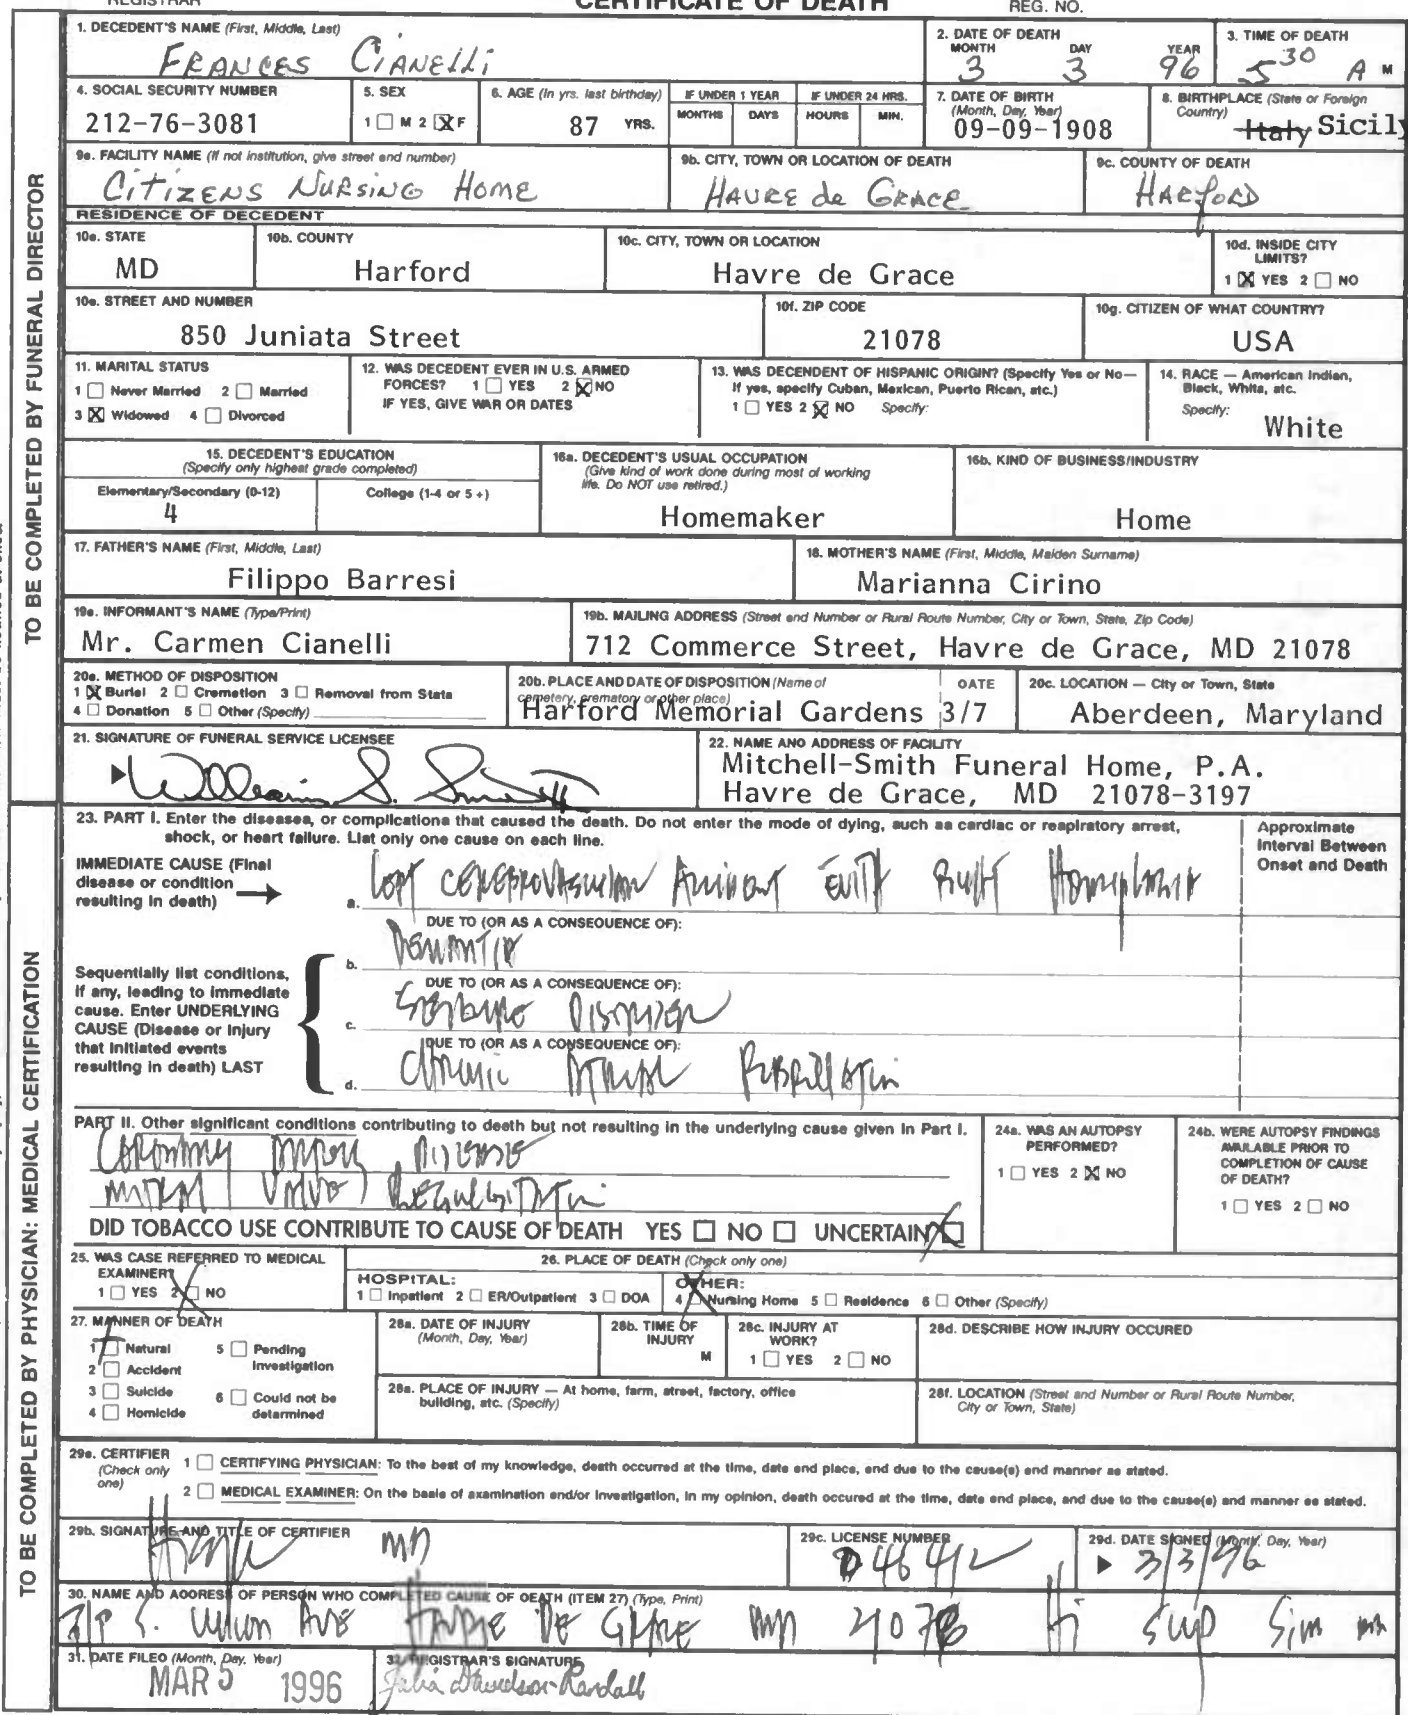 REGISTRAR CERTIFICATE OF DEATH REG. NO.
1. DECEDENT'S NAME (First, Middle, Last)
FRANCES CIANELLI
2. DATE OF DEATH
MONTH DAY YEAR
3 3 96
3. TIME OF DEATH
5 30 A M
4. SOCIAL SECURITY NUMBER
212-76-3081
5. SEX
1 ☐ M 2 ☒ F
6. AGE (In yrs. last birthday)
87 YRS.
IF UNDER 1 YEAR
MONTHS DAYS
IF UNDER 24 HRS.
HOURS MIN.
7. DATE OF BIRTH
(Month, Day, Year)
09-09-1908
8. BIRTHPLACE (State or Foreign
Country)
Italy Sicily
9a. FACILITY NAME (If not institution, give street and number)
CITIZENS NURSING HOME
9b. CITY, TOWN OR LOCATION OF DEATH
HAVRE de GRACE
9c. COUNTY OF DEATH
HARFORD
RESIDENCE OF DECEDENT
10a. STATE
MD
10b. COUNTY
Harford
10c. CITY, TOWN OR LOCATION
Havre de Grace
10d. INSIDE CITY
LIMITS?
1 ☒ YES 2 ☐ NO
10e. STREET AND NUMBER
850 Juniata Street
10f. ZIP CODE
21078
10g. CITIZEN OF WHAT COUNTRY?
USA
11. MARITAL STATUS
1 ☐ Never Married 2 ☐ Married
3 ☒ Widowed 4 ☐ Divorced
12. WAS DECEDENT EVER IN U.S. ARMED
FORCES? 1 ☐ YES 2 ☒ NO
IF YES, GIVE WAR OR DATES
13. WAS DECENDENT OF HISPANIC ORIGIN? (Specify Yes or No—
If yes, specify Cuban, Mexican, Puerto Rican, etc.)
1 ☐ YES 2 ☒ NO Specify:
14. RACE — American Indian,
Black, White, etc.
Specify:
White
15. DECEDENT'S EDUCATION
(Specify only highest grade completed)
Elementary/Secondary (0-12) College (1-4 or 5+)
4
16a. DECEDENT'S USUAL OCCUPATION
(Give kind of work done during most of working
life. Do NOT use retired.)
Homemaker
16b. KIND OF BUSINESS/INDUSTRY
Home
17. FATHER'S NAME (First, Middle, Last)
Filippo Barresi
18. MOTHER'S NAME (First, Middle, Maiden Surname)
Marianna Cirino
19a. INFORMANT'S NAME (Type/Print)
Mr. Carmen Cianelli
19b. MAILING ADDRESS (Street and Number or Rural Route Number, City or Town, State, Zip Code)
712 Commerce Street, Havre de Grace, MD 21078
20a. METHOD OF DISPOSITION
1 ☒ Burial 2 ☐ Cremation 3 ☐ Removal from State
4 ☐ Donation 5 ☐ Other (Specify)
20b. PLACE AND DATE OF DISPOSITION (Name of
cemetery, crematory or other place) DATE
Harford Memorial Gardens 3/7
20c. LOCATION — City or Town, State
Aberdeen, Maryland
21. SIGNATURE OF FUNERAL SERVICE LICENSEE
William S. Smith
22. NAME AND ADDRESS OF FACILITY
Mitchell-Smith Funeral Home, P.A.
Havre de Grace, MD 21078-3197
23. PART I. Enter the diseases, or complications that caused the death. Do not enter the mode of dying, such as cardiac or respiratory arrest,
shock, or heart failure. List only one cause on each line.
Approximate
Interval Between
Onset and Death
IMMEDIATE CAUSE (Final
disease or condition
resulting in death)
a. Left cerebrovascular Accident with Right Hemiplegia
DUE TO (OR AS A CONSEQUENCE OF):
b. Dementia
Sequentially list conditions,
if any, leading to immediate
cause. Enter UNDERLYING
CAUSE (Disease or injury
that initiated events
resulting in death) LAST
DUE TO (OR AS A CONSEQUENCE OF):
c. Seizure Disorder
DUE TO (OR AS A CONSEQUENCE OF):
d. Chronic Atrial Fibrillation
PART II. Other significant conditions contributing to death but not resulting in the underlying cause given in Part I.
Coronary Artery Disease
Mitral Valve Regurgitation
DID TOBACCO USE CONTRIBUTE TO CAUSE OF DEATH YES ☐ NO ☐ UNCERTAIN ☒
24a. WAS AN AUTOPSY
PERFORMED?
1 ☐ YES 2 ☒ NO
24b. WERE AUTOPSY FINDINGS
AVAILABLE PRIOR TO
COMPLETION OF CAUSE
OF DEATH?
1 ☐ YES 2 ☐ NO
25. WAS CASE REFERRED TO MEDICAL
EXAMINER?
1 ☐ YES 2 ☒ NO
26. PLACE OF DEATH (Check only one)
HOSPITAL:
1 ☐ Inpatient 2 ☐ ER/Outpatient 3 ☐ DOA
OTHER:
4 ☒ Nursing Home 5 ☐ Residence 6 ☐ Other (Specify)
27. MANNER OF DEATH
1 ☒ Natural 5 ☐ Pending
Investigation
2 ☐ Accident
3 ☐ Suicide 6 ☐ Could not be
determined
4 ☐ Homicide
28a. DATE OF INJURY
(Month, Day, Year)
28b. TIME OF
INJURY
M
28c. INJURY AT
WORK?
1 ☐ YES 2 ☐ NO
28d. DESCRIBE HOW INJURY OCCURED
28e. PLACE OF INJURY — At home, farm, street, factory, office
building, etc. (Specify)
28f. LOCATION (Street and Number or Rural Route Number,
City or Town, State)
29a. CERTIFIER
(Check only
one)
1 ☐ CERTIFYING PHYSICIAN: To the best of my knowledge, death occurred at the time, date and place, and due to the cause(s) and manner as stated.
2 ☐ MEDICAL EXAMINER: On the basis of examination and/or investigation, in my opinion, death occured at the time, date and place, and due to the cause(s) and manner as stated.
29b. SIGNATURE AND TITLE OF CERTIFIER
MD
29c. LICENSE NUMBER
D46412
29d. DATE SIGNED (Month, Day, Year)
3/3/96
30. NAME AND ADDRESS OF PERSON WHO COMPLETED CAUSE OF DEATH (ITEM 27) (Type, Print)
S. Union Ave Havre De Grace MD 21078 Hi Sup Sim MD
31. DATE FILED (Month, Day, Year)
MAR 5 1996
32. REGISTRAR'S SIGNATURE
Julia Davidson-Randall
TO BE COMPLETED BY FUNERAL DIRECTOR
TO BE COMPLETED BY PHYSICIAN: MEDICAL CERTIFICATION